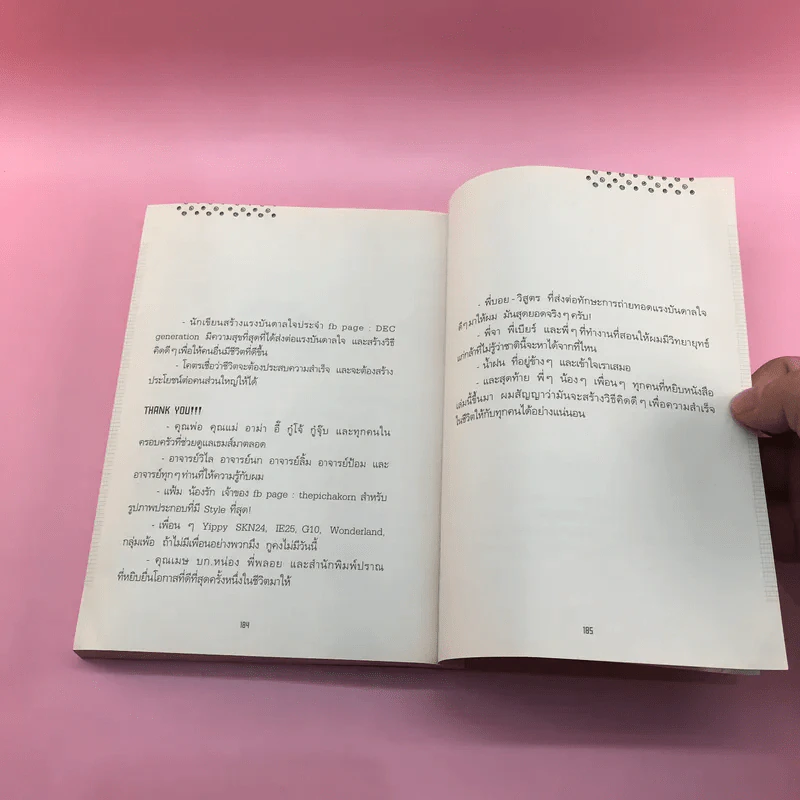 - นักเขียนสร้างแรงบันดาลใจประจำ fb page : DEC
generation มีความสุขที่สุดที่ได้ส่งต่อแรงบันดาลใจ และสร้างวิธี
คิดดีๆเพื่อให้คนอื่นมีชีวิตที่ดีขึ้น
- โคตรเชื่อว่าชีวิตจะต้องประสบความสำเร็จ และจะต้องสร้าง
ประโยชน์ต่อคนส่วนใหญ่ให้ได้
THANK YOU!!!
- คุณพ่อ คุณแม่ อาม่า อี๊ กู๋โจ้ กู๋จุ๊บ และทุกคนใน
ครอบครัวที่ช่วยดูแลเธมส์มาตลอด
- อาจารย์วิไล อาจารย์นก อาจารย์ลิ้ม อาจารย์ป้อม และ
อาจารย์ทุกๆท่านที่ให้ความรู้กับผม
- แฟ้ม น้องรัก เจ้าของ fb page : thepichakorn สำหรับ
รูปภาพประกอบที่มี Style ที่สุด!
- เพื่อน ๆ Yippy SKN24, IE25, G10, Wonderland,
กลุ่มเพ้อ ถ้าไม่มีเพื่อนอย่างพวกมึง กูคงไม่มีวันนี้
- คุณเมษ บก.หน่อง พี่พลอย และสำนักพิมพ์ปราณ
ที่หยิบยื่นโอกาสที่ดีที่สุดครั้งหนึ่งในชีวิตมาให้
184
- พี่บอย - วิสูตร ที่ส่งต่อทักษะการถ่ายทอดแรงบันดาลใจ
ดีๆมาให้ผม มันสุดยอดจริงๆครับ!
- พี่จา พี่เบียร์ และพี่ๆที่ทำงานที่สอนให้ผมมีวิทยายุทธ์
แก่กล้าที่ไม่รู้ว่าชาตินี้จะหาได้จากที่ไหน
- น้ำฝน ที่อยู่ข้างๆ และเข้าใจเราเสมอ
- และสุดท้าย พี่ๆ น้องๆ เพื่อนๆ ทุกคนที่หยิบหนังสือ
เล่มนี้ขึ้นมา ผมสัญญาว่ามันจะสร้างวิธีคิดดีๆเพื่อความสำเร็จ
ในชีวิตให้กับทุกคนได้อย่างแน่นอน
185